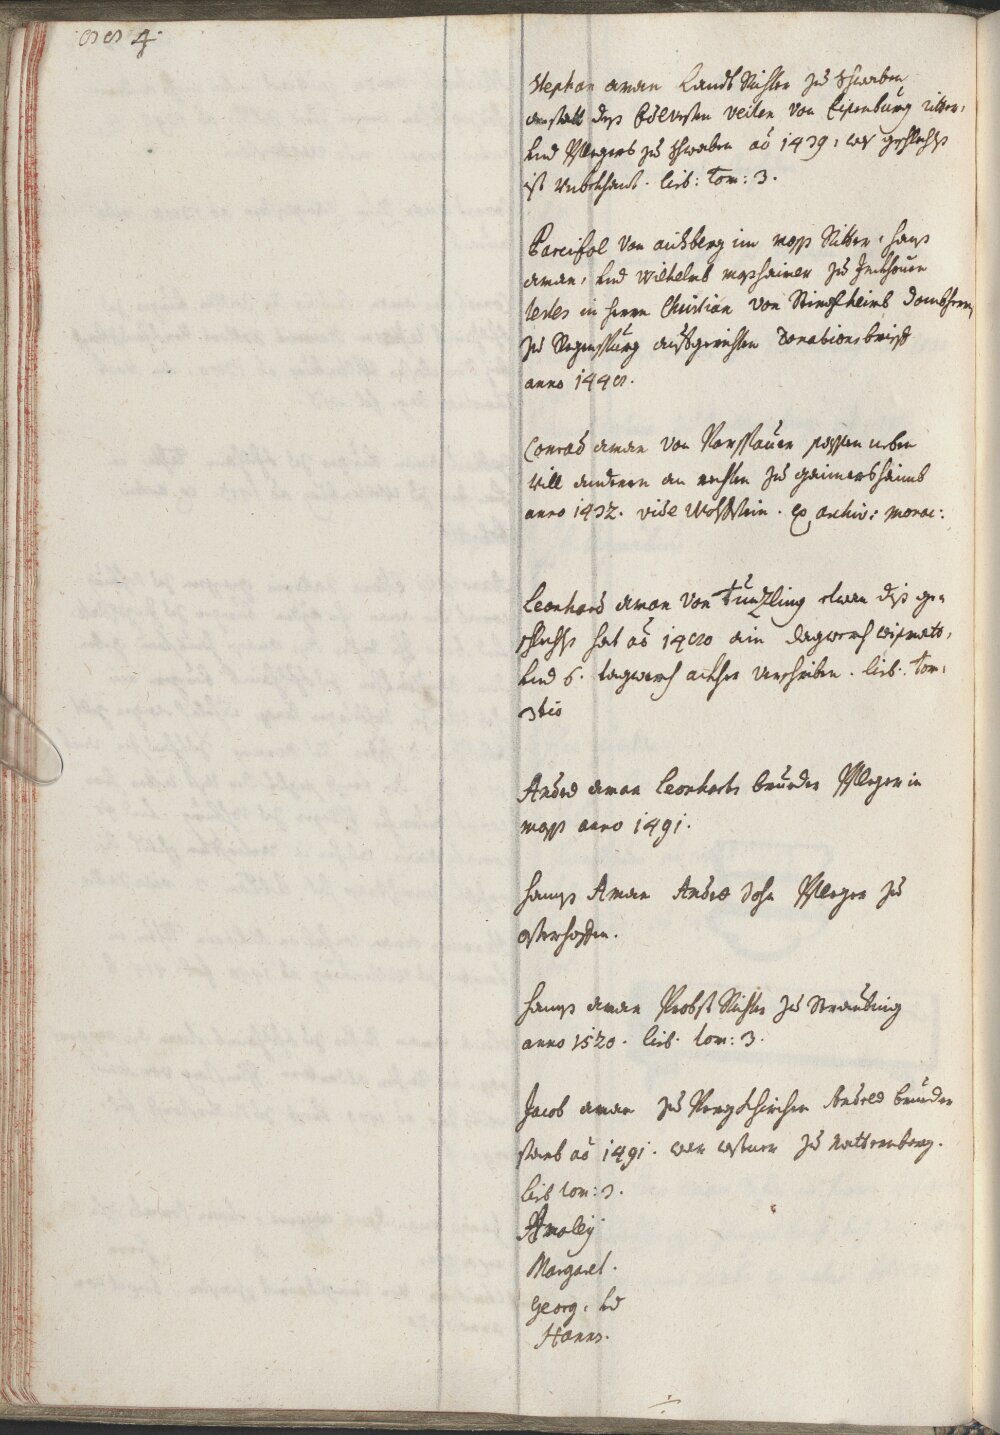 884
Stephan aman LandtRichter zu Schwaben
anstatt deß Edlvesten Veiten von Eisenburg ritter,
und Pflegers zu Schwaben aō 1439, was geschlechts
ist unbekhant. lieb: tom: 3.
Parcifal von aichberg im moß Ritter, hanß
aman, und Wilhelmb moßhaimer zu
testes in herrn Christian von dombherrn
zu Regenspurg aufgerichten donationsbrieff
anno 1448.
Conrad aman von neben
vill anderen an rechten zu gaimershaimb
anno 1432. vide Wolfstein. ex archiv: monac:
Leonhard aman von Tünzling etwan diß ge¬
schlechts hat aō 1480 ain dagwerch wißmath,
und 6. tagwerch ackher verschriben. lieb. tom:
3tio
Andreé aman Leonhards bruder Pfleger in
moß anno 1491.
hannß Aman Andree Sohn Pfleger zu
osterhoffen.
hannß aman Probst Richter zu Straubing
anno 1520. lieb. tom: 3.
Jacob aman zu Pergkhirchen Andreé bruder
starb aō 1491. war castner zu natternberg.
lieb tom: 3.
Amaleÿ
Margaret.
Georg. und
Hanns.